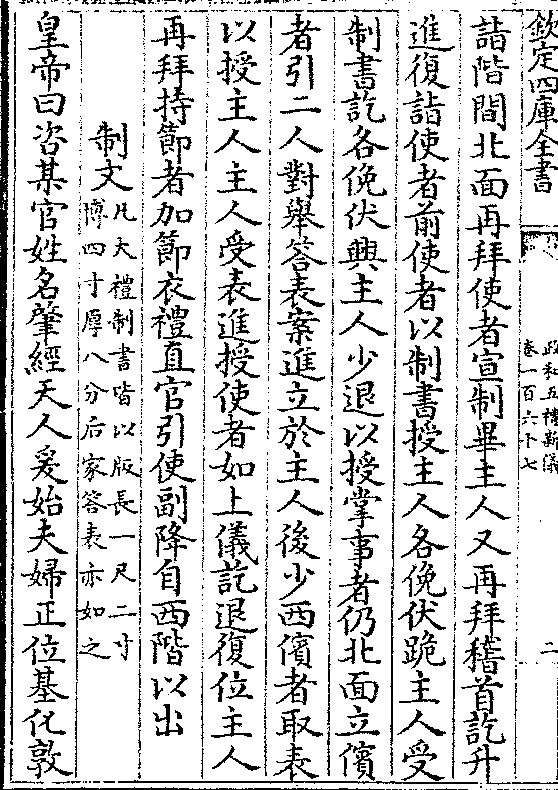 欽定四庫全書
政和五禮新儀
卷一百六十七
二
詣階間北面再拜使者宣制畢主人又再拜稽首訖升
進復詣使者前使者以制書授主人各俛伏跪主人受
制書訖各俛伏興主人少退以授掌事者仍北面立儐
者引二人對舉答表案進立於主人後少西儐者取表
以授主人主人受表進授使者如上儀訖退復位主人
再拜持節者加節衣禮直官引使副降自西階以出
制文
凡大禮制書皆以版長一尺二寸
博四寸厚八分后家答表亦如之
皇帝曰咨某官姓名肇經天人爰始夫婦正位基化敦